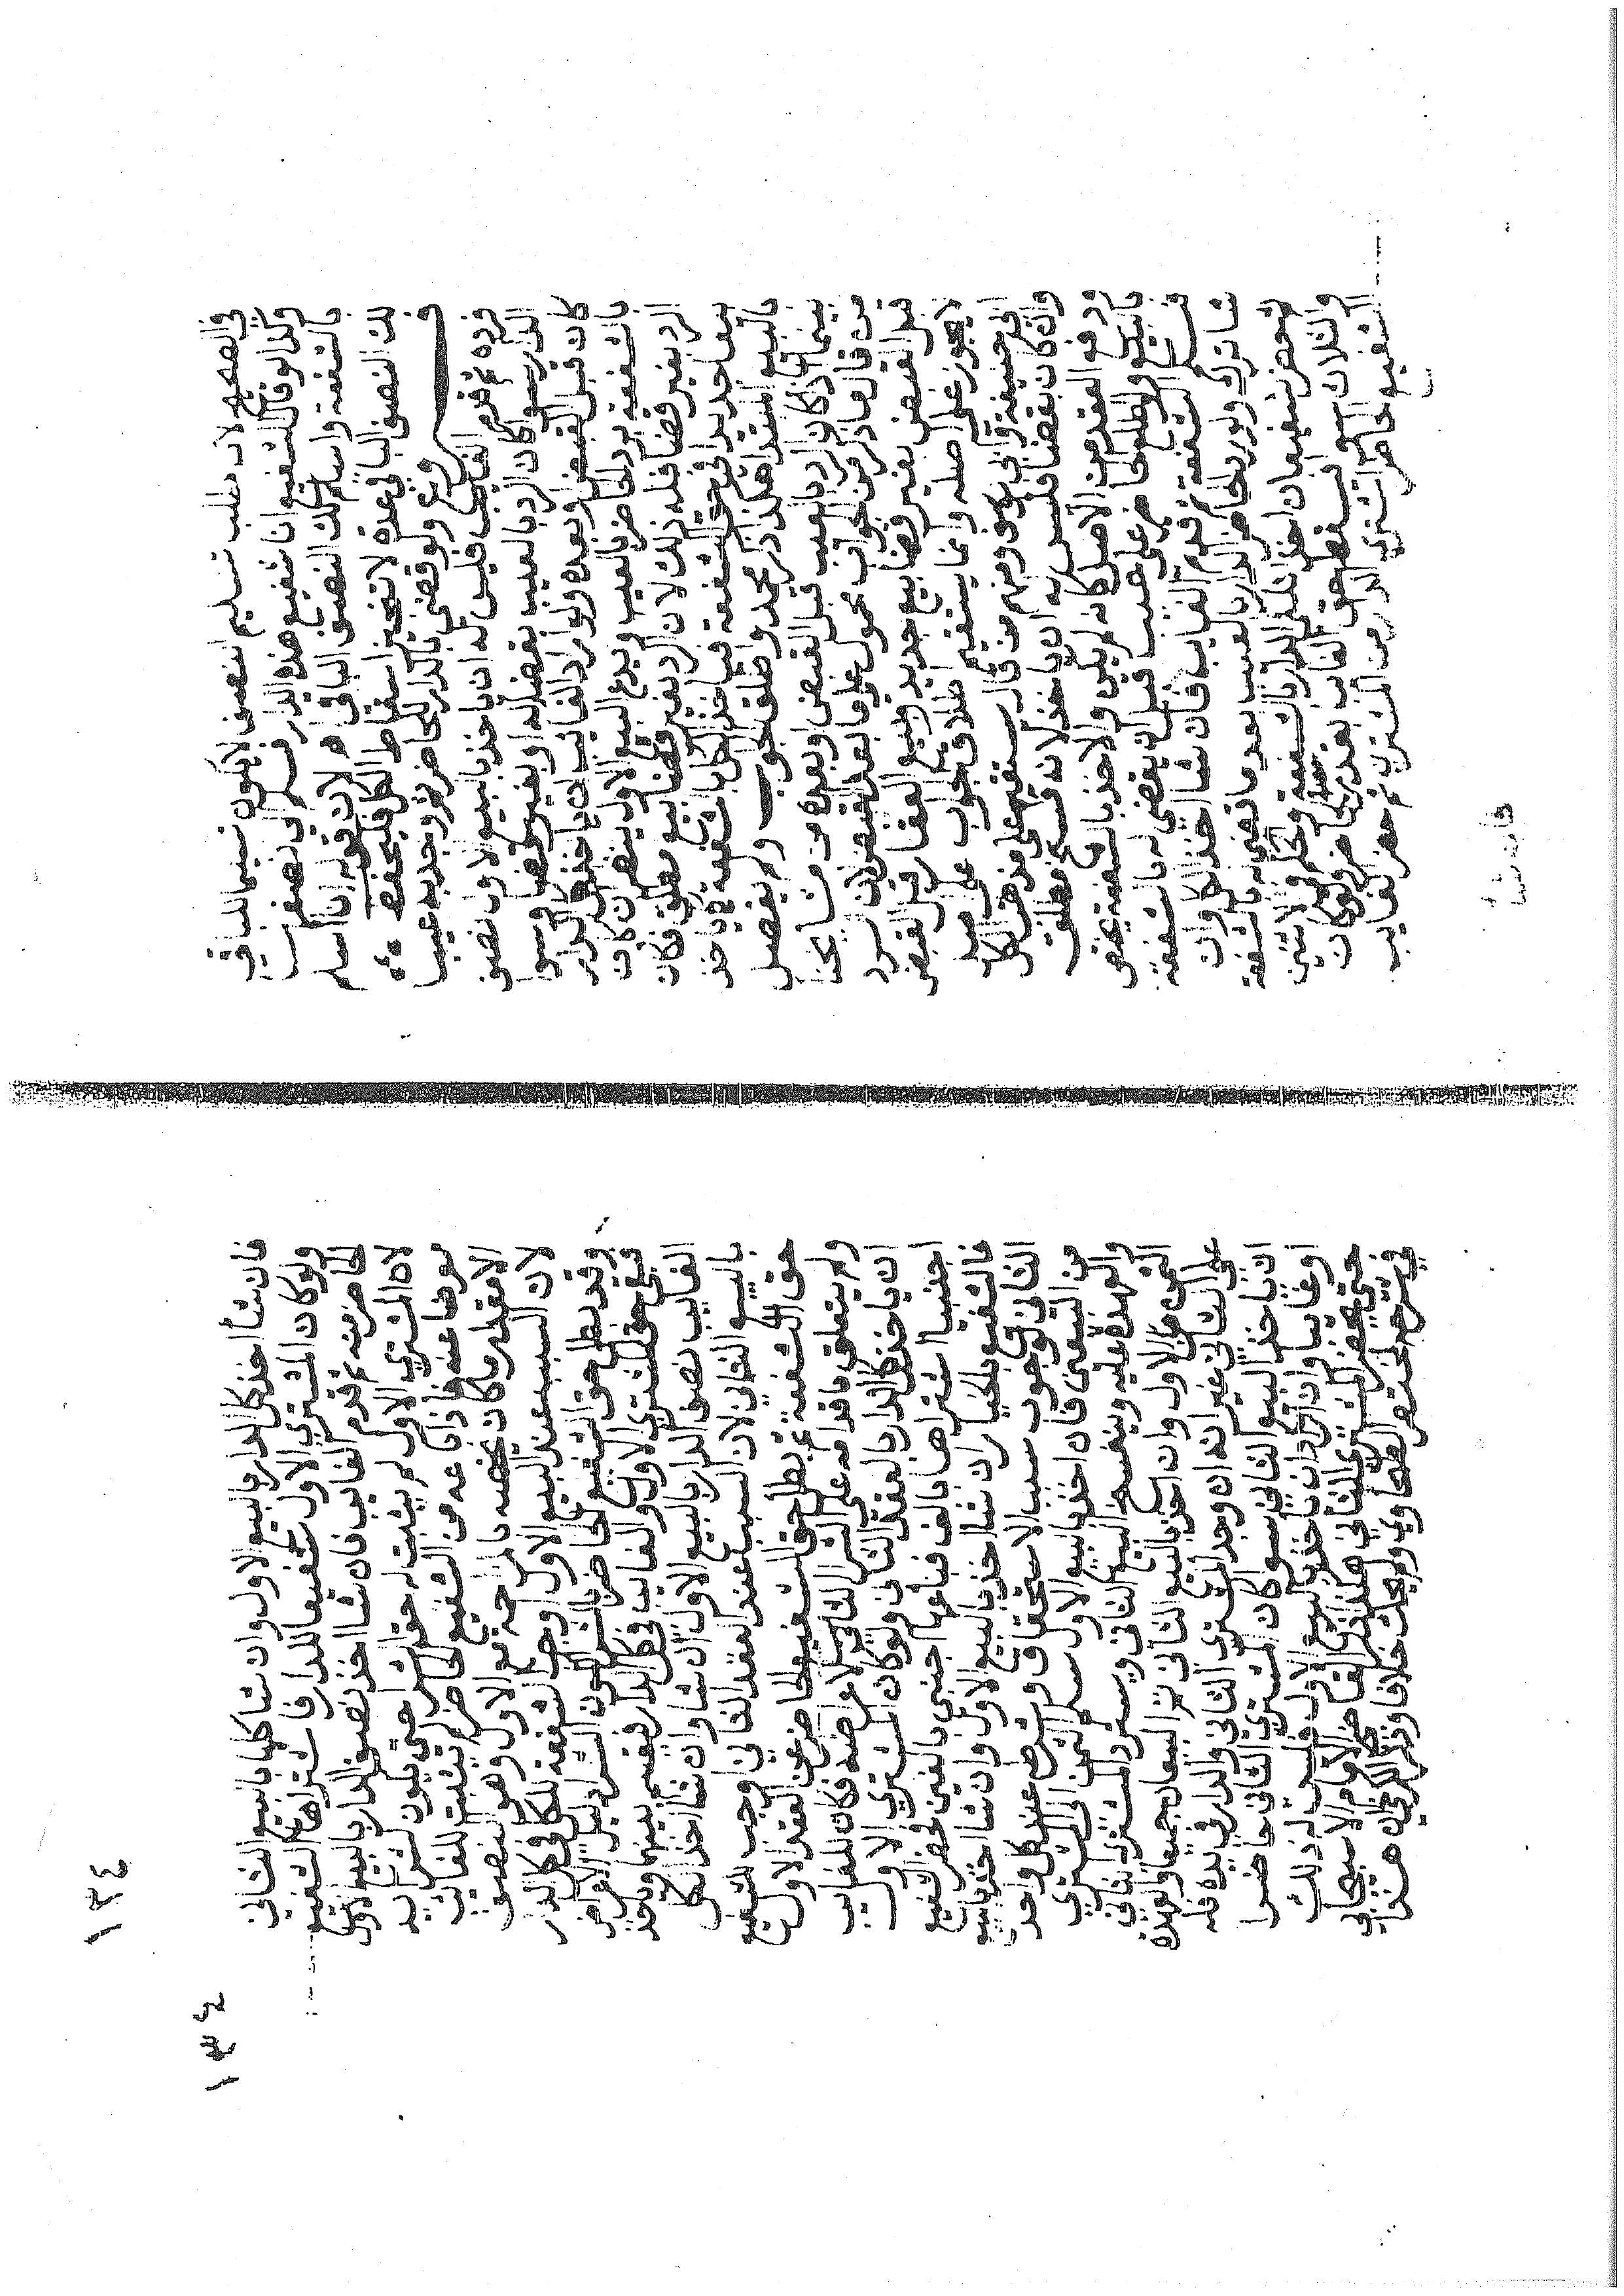 في الصحيح لان طلب تسليم النصف لا يكون تسليما للباقي
وكذا لو قال الشفيع انا شفيع هذه الدار فسلم الي نصفها
بالشفعة واسلم لك النصف الباقي اه لان قوله ان اسلم
لك النصف الباقي عدة لا تنجيز اسقاط الكل فليحفظ اه
فرع ولو قضي بالدار للحاضر ثم وجد به عيبا
فرده ثم قدم الغايب فليس له ان ياخذ بالبيع الاول نصف
الدار سوا كان الرد بالعيب بقضا او بغير قضا وسوا
كان قبل القبض او بعده ولو اراد الغايب ان ياخذ كل الدار
بالشفعة برد الحاضر بالعيب ويدع البيع الاول ينظر ان كان
الرد بغير قضا فله ذلك لان الرد بغير قضا بيع مطلق فكان
بيعا جديدا في حق الشفعة فياخذ الكل بالشفعة كما ياخذ
بالبيع المبتدا هكذا ذكر محمد واطلق الجواب ولم يفصل
بينما اذا كان الرد بالعيب قبل القبض او بعده من مشايخنا
من قال ما ذكر من الجواب محمول على ما بعد القبض لان الرد
قبل القبض بغير قضا بيع جديد وبيع العقار قبل القبض
لا يجوز على اصله وانما يستقيم اطلاق الجواب على اصل
ابي حنيفة وابي يوسف ومنهم من قال يستقيم على مذهب الكل
وان كان بقضا فليس له ان ياخذ لانه فسخ مطلق
ورفع العقد من الاصل كانه لم يكن والاخذ بالشفعة يختص
بالبيع ولو اطلع الحاضر على عيب قبل ان يقضي له بالشفعة
فسلم الشفعة ثم قدم الغايب فان شا اخذ الكل وان
شا ترك ولو رد الحاضر الدار بالعيب بعد ما قضي له بالشفعة
ثم حضر شفيعان اخذا ثلثي الدار بالشفعة والحكم في الاثنين
والثلاث سوا فيسقط حق الغايب بقدر حصة الحاضر ولو كان
الشفيع الحاضر اشتري الدار من المشتري ثم حضر الغايب
فان شا
١٣٤
١٣٤
فان شا اخذ كل الدار بالبيع الاول وان شا كلها بالبيع الثاني
ولو كان المشتري الاول شفيعا للدار فاشتراها الشفيع
الحاضر منه ثم قدم الغايب فان شا اخذ نصف الدار بالبيع الاول
لان المشتري الاول لم يثبت له حق الشرا حتى يكون بشرايه
معرضا عنه فاذا باعه من الشفيع الحاضر لم يثبت للغايب
الا مقدار ما كان يخصه بالمزاحمة مع الاول وهو النصف
لان السبب عند البيع الاول اوجب الشفعة للكل في كل الدار
وقد بطل حق الشفيع الحاضر بالشرا لكون الشرا دليل الاعراض
فبقي حق المشتري الاول والغايب في كل الدار فيقسم بينهما وياخذ
الغايب نصف الدار بالبيع الاول ان شا وان شا اخذ الكل
بالبيع الثاني لان السبب عند العقد الثاني اوجب للشفيع
حق الشفعة ثم بطل حق الشفيع الحاضر عن العقد الاول
ولم يتعلق باقدامه على الشرا الثاني لاعراضه فكان للغايب
ان ياخذ كل الدار بالعقد الثاني ولو كان المشتري الاول
اجنبيا اشتراها بالف فباعها اجنبي بالفين فحضر الشفيع
فالشفيع بالخيار ان شا اخذ بالبيع الاول وان شا اخذ بالبيع
الثاني لوجوب سبب الاستحقاق وشرطه عند كل واحد
من البيعين فان اخذ بالبيع الاول سلم الثمن الى المشتري
والعهدة عليه وينفسخ البيع الثاني ويسترد المشتري الثاني
الثمن من الاول وان اخذ بالبيع الثاني تم البيعان جميعا والعهدة
على الثاني غير انه ان وجد المشتري الثاني والدار في يده فله
ان ياخذ البيع الثاني سوا كان المشتري الثاني حاضرا
او غايبا وان اراد ان ياخذ بالبيع الاول فليس له ذلك
حتى يحضر المشتري الثاني هكذا ذكر القاضي الامام الاسبيجابي
في شرح مختصر الطحاوي ولم يحك خلافا وذكر الكرخي ان هذا